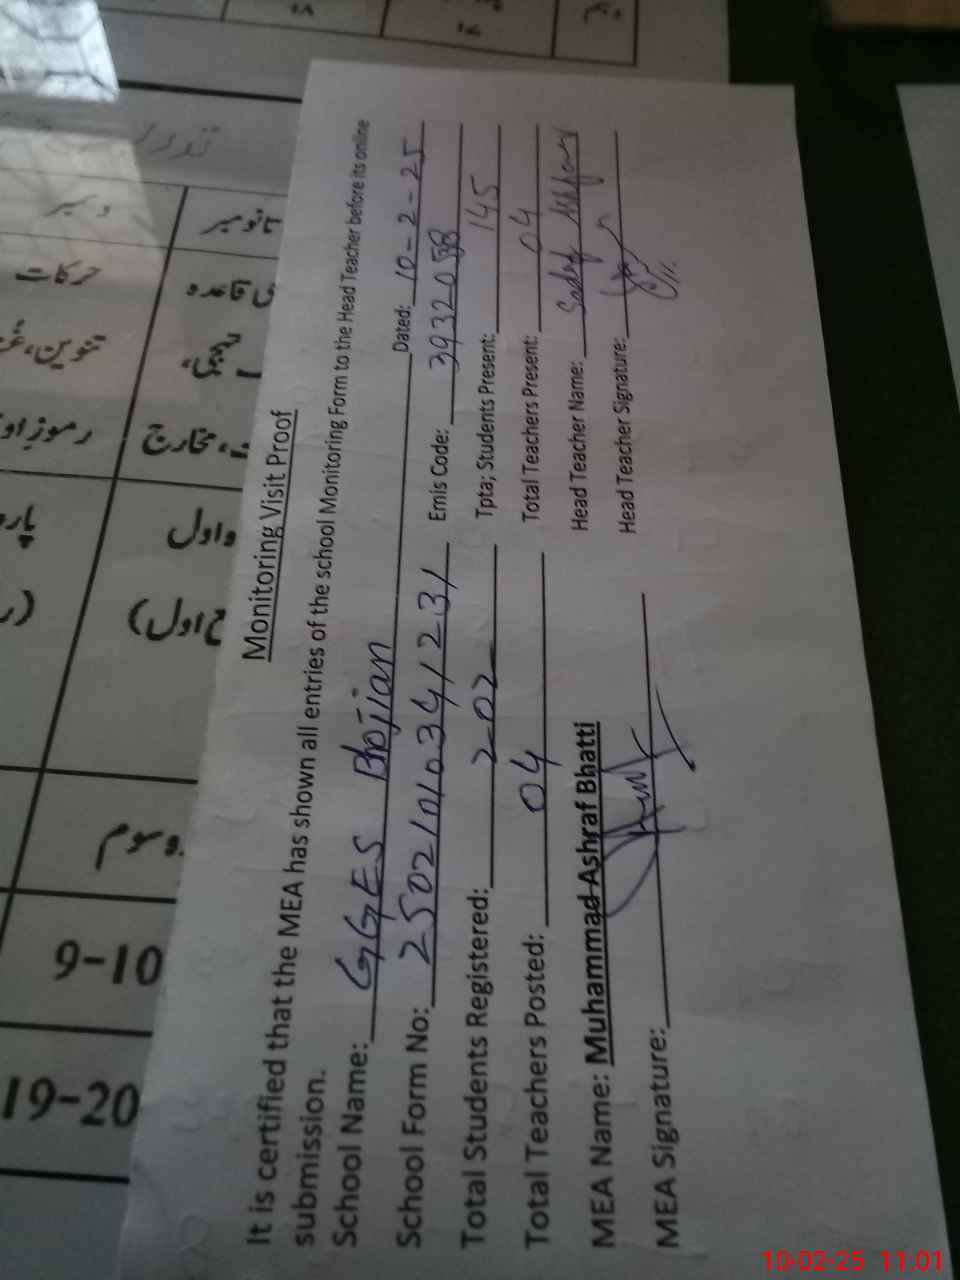 Monitoring Visit Proof
It is certified that the MEA has shown all entries of the school Monitoring Form to the Head Teacher before its online
submission.
School Name: GGES Bhojian Dated: 10-2-25
School Form No: 25021010341231 Emis Code: 39320
Total Students Registered: 202 Tpta; Students Present: 145
Total Teachers Posted: 04 Total Teachers Present: 04
MEA Name: Muhammad Ashraf Bhatti Head Teacher Name: Sadaf Ashfaq
MEA Signature: Head Teacher Signature:
دسمبر
تا نومبر
حرکات
ی قاعدہ
رموز او
ت، مخارج
پار
واول
ح اول)
(ر
وسوم
9-10
19-20
10-02-25 11:01